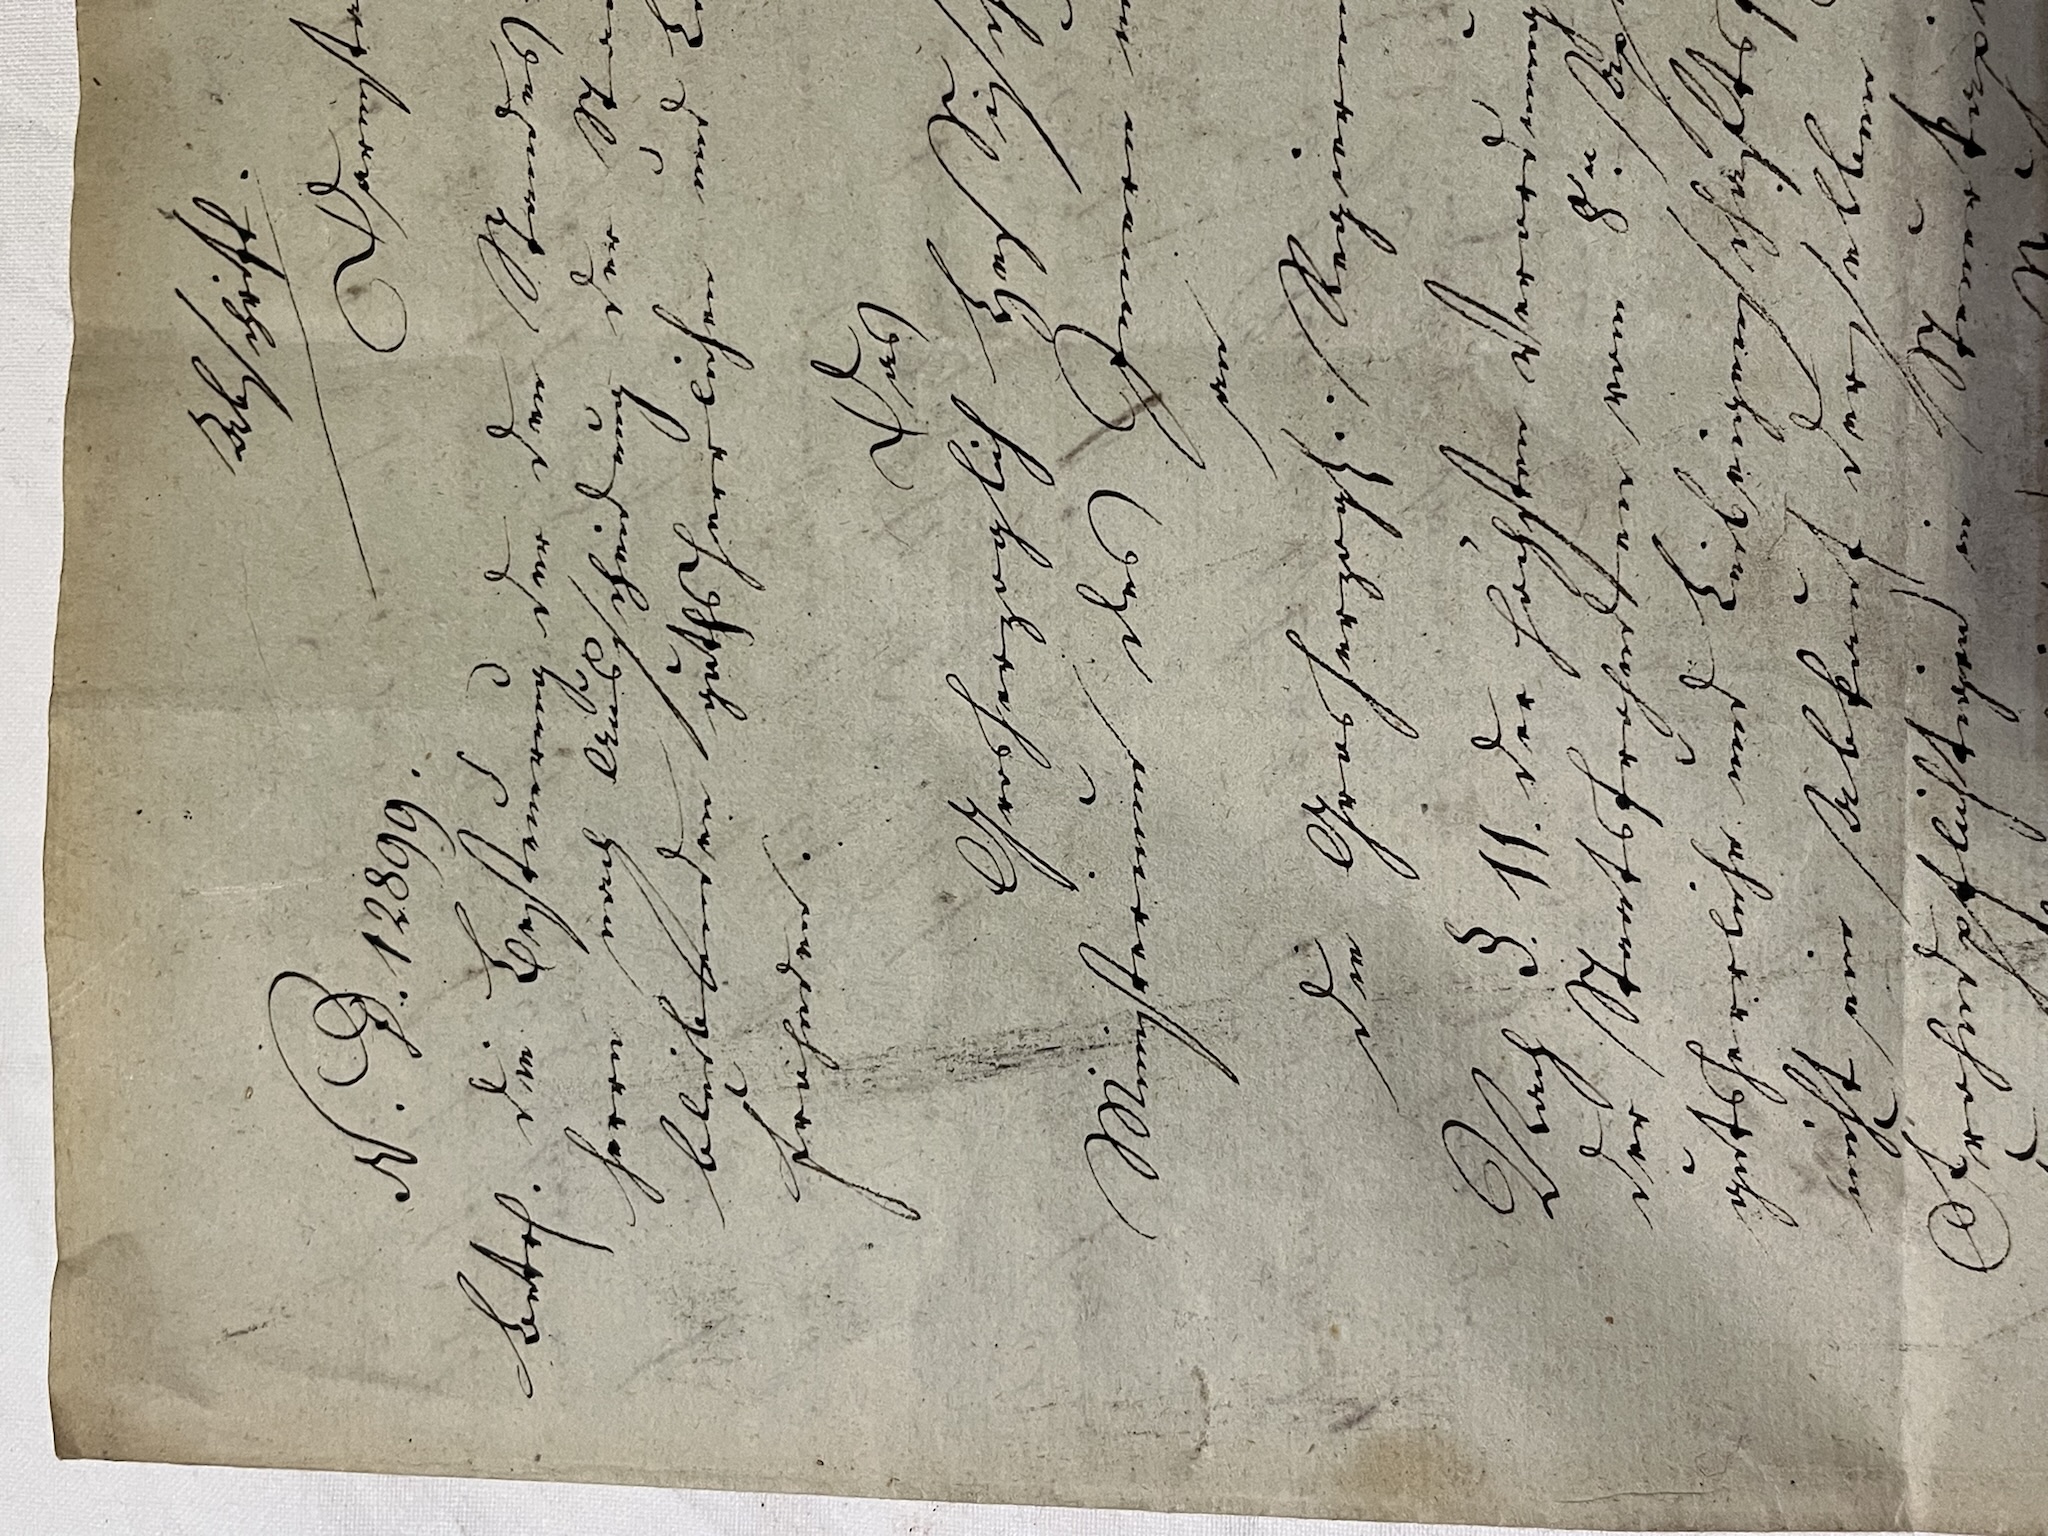 Abschrift.
Darmsta
N. D. 12899.
Betrf. die Besteuerung der den Standes
herrn nach Ausscheidung der Sta
bleibenden guthsherrlichen und Le
frohnden.
Das
Grosherzoglich Hessisch
Ministerium des Innern u
an
die Grosherzogl. Regierun
Nach §. 11. der höchsten Verordnung
der Staatsfrohnden vom 8n. Ap
gutsherrliche und Leibeigenschafts
nicht ein Abkauf derselben
Frohndpflichtigen in Steuerkapi